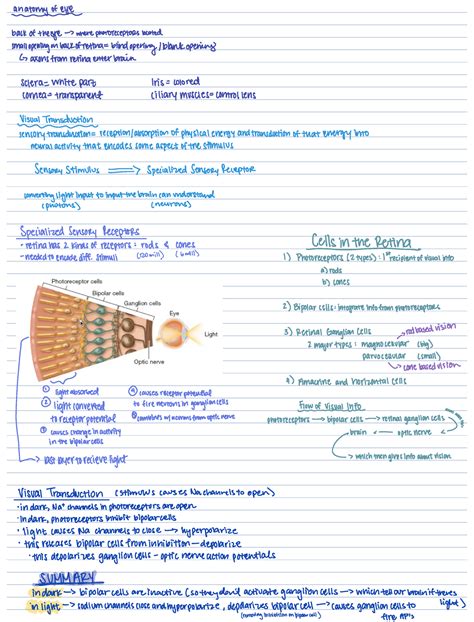 anatomy of eye
back of the eye -> where photoreceptors located
small opening on back of retina = blind opening / blank opening
↳ axons from retina enter brain
sclera = white part
Iris = colored
cornea = transparent
ciliary muscles = control lens
Visual Transduction
sensory transduction = reception/absorption of physical energy and transduction of that energy into
neural activity that encodes some aspect of the stimulus
Sensory Stimulus ⟹ Specialized Sensory Receptor
converting light input to input the brain can understand
(photons) (neurons)
Specialized Sensory Receptors
• retina has 2 kinds of receptors: rods & cones
- needed to encode diff. stimuli (120 mill) (6 mill)
Photoreceptor cells
Bipolar cells
Ganglion cells
Eye
Light
Optic nerve
① light absorved
② light converted
to receptor potential
③ causes change in activity
in the bipolar cells
④ causes receptor potential
to fire neurons in ganglion cells
⑤ w/ axons from optic nerve
↳ last layer to recieve light
Cells in the Retina
1) Photoreceptors (2 types): 1st recipient of visual info
a) rods
b) cones
2) Bipolar cells: integrate info from photoreceptors
3) Retinal Ganglion Cells
-> rod based vision
2 major types: magnocellular (big)
parvocellular (small)
↳ cone based vision
4) Amacrine and Horizontal cells
Flow of Visual Info
photoreceptors -> bipolar cells -> retinal ganglion cells
brain <- optic nerve <-
↳ which then gives info about vision
Visual Transduction (stimulus causes Na channels to open)
• in dark, Na+ channels in photoreceptors are open
• In dark, photoreceptors inhibit bipolar cells
• light causes Na channels to close -> hyperpolarize
• this releases bipolar cells from inhibition - depolarize
• this depolarizes ganglion cells - optic nerve action potentials
SUMMARY
in dark -> bipolar cells are inactive (so they don't activate ganglion cells -> which tell our brain if theres light)
in light -> sodium channels close and hyperpolarize, depolarizes bipolar cell -> causes ganglion cells to
(removing inhibition on bipolar cell) fire AP's